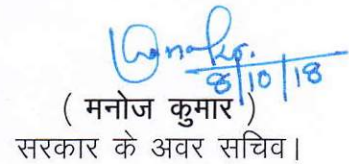 8/10/18
( मनोज कुमार )
सरकार के अवर सचिव।